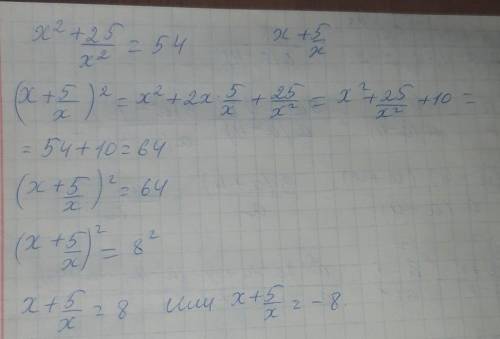 x² + 25/x² = 54    x + 5/x
(x + 5/x)² = x² + 2x · 5/x + 25/x² = x² + 25/x² + 10 =
= 54 + 10 = 64
(x + 5/x)² = 64
(x + 5/x)² = 8²
x + 5/x = 8 или x + 5/x = -8